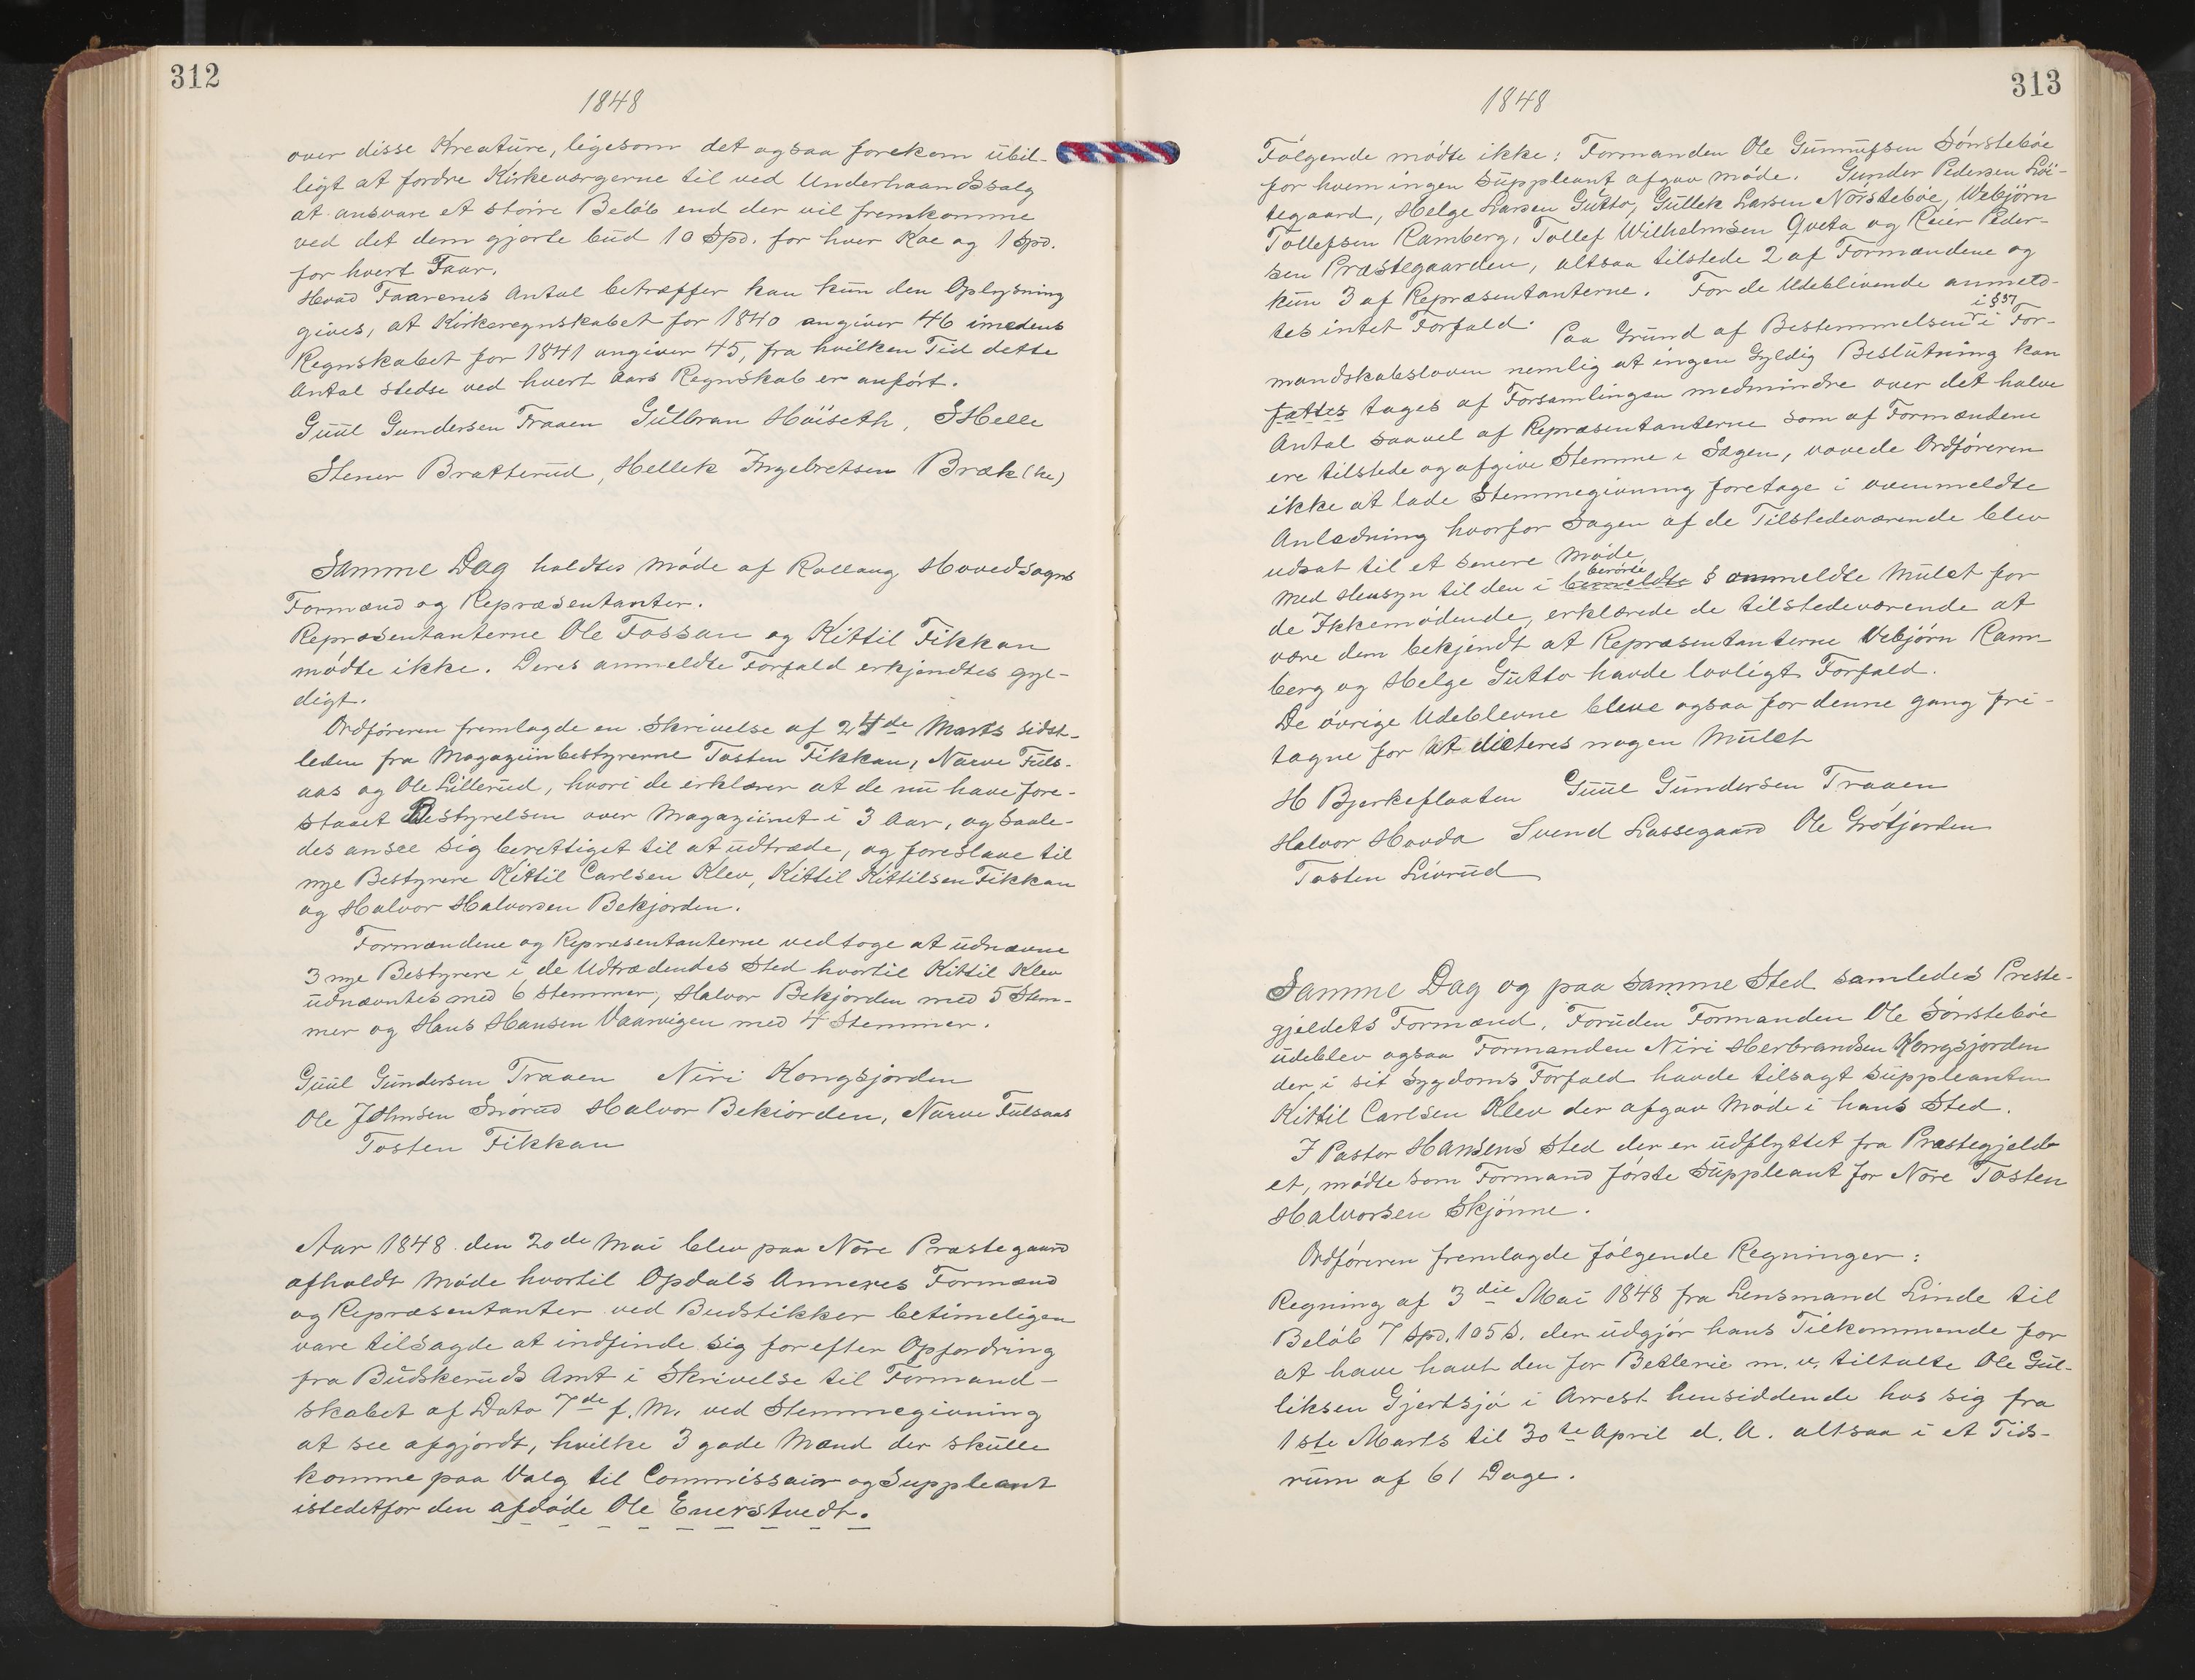 312
1848
over disse Kreature, ligesom det ogsaa forekom ubil-
ligt at fordre Kirkeværgerne til ved Underhaandssalg
at ansvare et større Beløb end der vil fremkomme
ved det dem gjorte bud 10 Spd. for hver Koe og 1 Spd.
for hvert Faar.
Hvad Faarenes Antal betræffer kan kun den Oplysning
gives, at Kirkeregnskabet for 1840 angiver 46 imedens
Regnskabet for 1841 angiver 45, fra hvilken Tid dette
Antal stedse ved hvert Aars Regnskab er anført.
Guul Gundersen Traaen Gulbran Höiseth, S Helle
Stener Bratterud, Hellek Ingebretsen Bræk (ke)
Samme Dag holdtes Møde af Rollaug Hovedsogns
Formænd og Repræsentanter.
Repræsentanterne Ole Fossan og Kittil Fikkan
mødte ikke. Deres anmeldte Forfald erkjendtes gyl-
digt.
Ordføreren fremlagde en Skrivelse af 24de Marts sidst-
leden fra Magaziinbestyrerne Tosten Fikkan, Narve Fuls-
aas og Ole Lillerud, hvori de erklærer at de nu have fore-
staaet Bestyrelsen over Magazinet i 3 Aar, og saale-
des ansee sig berettiget til at udtræde, og foreslaae til
nye Bestyrere Kittil Carlsen Klev, Kittil Kittilsen Fikkan
og Halvor Halvorsen Bekjorden.
Formændene og Repræsentanterne vedtoge at udnævne
3 nye Bestyrere i de Udtrædendes Sted hvortil Kittil Klev
udnævntes med 6 Stemmer, Halvor Bekjorden med 5 Stem-
mer og Hans Hansen Vaarvigen med 4 Stemmer.
Guul Gundersen Traaen Niri Kongsjorden
Ole Johnsen Snörud Halvor Bekiorden, Narve Fulsaas
Tosten Fikkan
Aar 1848 den 20de Mai blev paa Nore Præstegaard
afholdt Møde hvortil Opdals Annexes Formænd
og Repræsentanter ved Budstikker betimeligen
vare tilsagde at indfinde sig for efter Opfordring
fra Budskeruds Amt i Skrivelse til Formand-
skabet af Dato 7de f. M. ved Stemmegivning
at see afgjordt, hvilke 3 gode Mænd der skulle
komme paa Valg til Commissair og Suppleant
istedetfor den afdøde Ole Enerstvedt.
313
1848
Følgende mødte ikke: Formanden Ole Gunnufsen Sønstebøe
for hvem ingen Suppleant afgav Møde. Gunder Pedersen Löi-
tegaard, Helge Larsen Gutto, Gullek Larsen Nørstebøe, Webjörn
Tollefsen Ramberg, Tollef Wilhelmsen Qveta og Reier Peder-
sen Præstegaarden, altsaa tilstede 2 af Formændene og
kun 3 af Repræsentanterne. For de Udeblivende anmeld-
tes intet Forfald. Paa Grund af Bestemmelsen i § 37 i For-
mandskabsloven nemlig at ingen Gyldig Beslutning kan
fattes tages af Forsamlingen medmindre over det halve
Antal saavel af Repræsentanterne som af Formændene
ere tilstede og afgive Stemme i Sagen, vovede Ordføreren
ikke at lade Stemmegivning foretage i ovenmeldte
Anledning hvorfor Sagen af de Tilstedeværende blev
udsat til et senere Møde.
Med Hensyn til den i bemeldte berørte § ommeldte Mulct for
de Ikkemødende, erklærede de tilstedeværende at
være dem bekjendt at Repræsentanterne Vebjörn Ram-
berg og Helge Gutto havde lovligt Forfald.
De øvrige Udeblevne bleve ogsaa for denne gang fri-
tagne for at dicteres nogen Mulct
H Bjerkeflaaten Guul Gundersen Traaen
Halvor Hovda Svend Lassegaard Ole Grötjorden
Tosten Livrud
Samme Dag og paa samme Sted samledes Preste-
gjeldets Formænd. Foruden Formanden Ole Sønstebøe
udeblev ogsaa Formanden Niri Herbrandsen Kongsjorden
der i sit Sygdoms Forfald havde tilsagt Suppleanten
Kittil Carlsen Klev der afgav Møde i hans Sted.
I Pastor Hansens Sted der er udflyttet fra Præstegjeld-
et, mødte som Formand første Suppleant for Nore Tosten
Halvorsen Skjönne.
Ordføreren fremlagde følgende Regninger:
Regning af 3die Mai 1848 fra Lensmand Linde til
Beløb 7 Spd. 105 s. der udgjør hans Tilkommende for
at have havt den for Betlerie m. v. tiltalte Ole Gul-
liksen Gjertsjö i Arrest hensiddende hos sig fra
1ste Marts til 30te April d. A. altsaa i et Tids-
rum af 61 Dage.